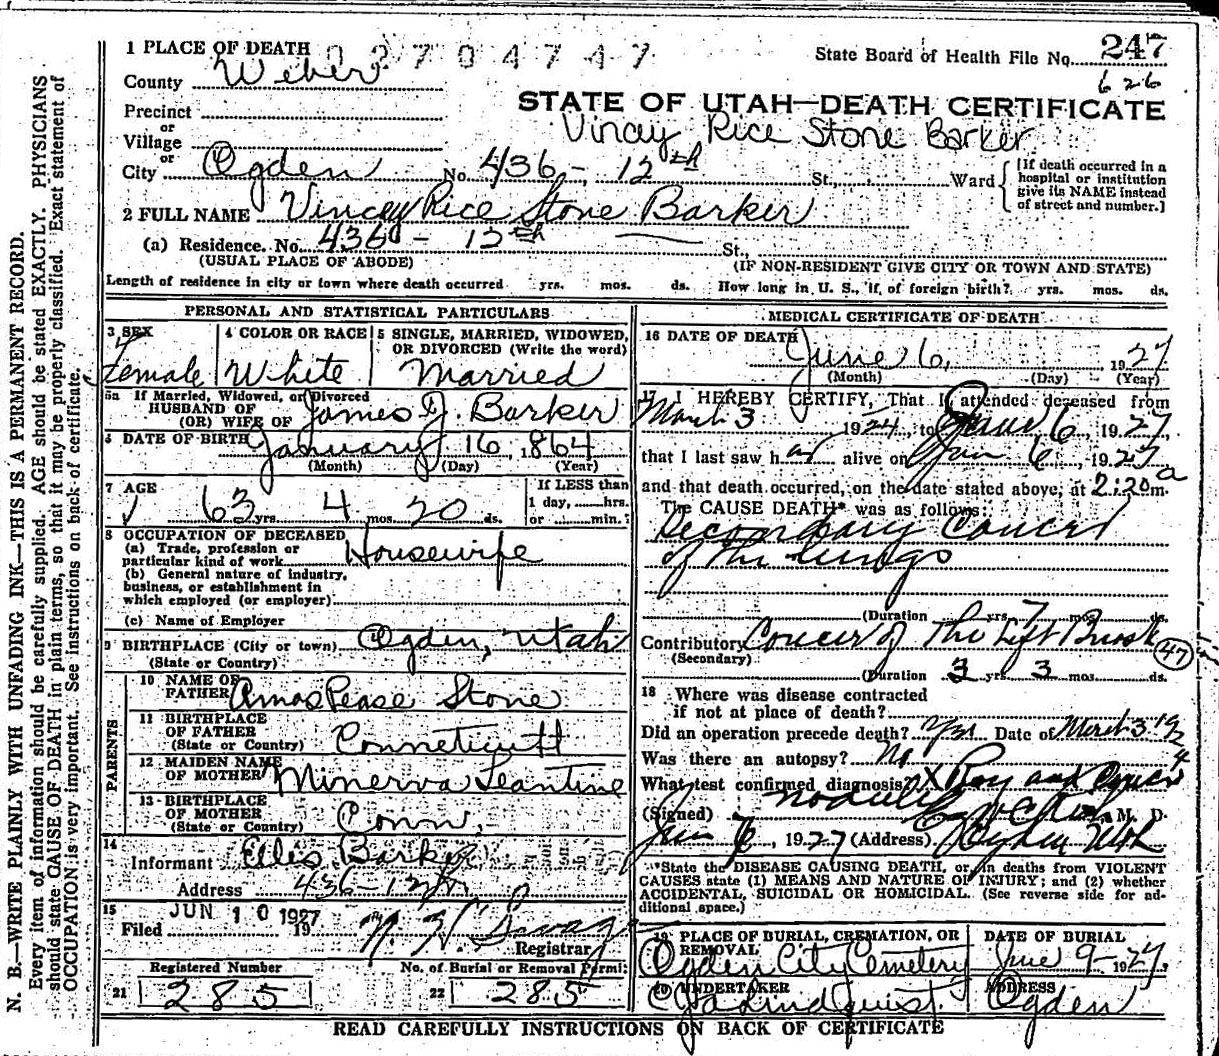 1 PLACE OF DEATH 02704747
State Board of Health File No. 247
County Weber 626
STATE OF UTAH—DEATH CERTIFICATE
Precinct
Vincey Rice Stone Barker
or
Village
or
City Ogden No. 436 - 12th St., Ward
[If death occurred in a hospital or institution give its NAME instead of street and number.]
2 FULL NAME Vincey Rice Stone Barker
(a) Residence. No. 436 - 12th St.,
(USUAL PLACE OF ABODE) (IF NON-RESIDENT GIVE CITY OR TOWN AND STATE)
Length of residence in city or town where death occurred yrs. mos. ds. How long in U. S., if of foreign birth? yrs. mos. ds.
PERSONAL AND STATISTICAL PARTICULARS
3 SEX 4 COLOR OR RACE 5 SINGLE, MARRIED, WIDOWED,
OR DIVORCED (Write the word)
Female White Married
5a If Married, Widowed, or Divorced
HUSBAND OF
(OR) WIFE OF James J. Barker
6 DATE OF BIRTH January 16, 1864
(Month) (Day) (Year)
7 AGE If LESS than
63 yrs. 4 mos. 20 ds. 1 day, hrs.
or min.?
8 OCCUPATION OF DECEASED
(a) Trade, profession or
particular kind of work Housewife
(b) General nature of industry,
business, or establishment in
which employed (or employer)
(c) Name of Employer
9 BIRTHPLACE (City or town) Ogden, Utah
(State or Country)
PARENTS
10 NAME OF
FATHER Amos Pease Stone
11 BIRTHPLACE
OF FATHER
(State or Country) Conneticutt
12 MAIDEN NAME
OF MOTHER Minerva Leantine
13 BIRTHPLACE
OF MOTHER
(State or Country) Conn.
14
Informant Barker
Address 436-12th
15 JUN 10 1927
Filed 19
Registrar
Registered Number No. of Burial or Removal Permit
21 285 22 285
MEDICAL CERTIFICATE OF DEATH
16 DATE OF DEATH June 6, 1927
(Month) (Day) (Year)
17 I HEREBY CERTIFY, That I attended deceased from
March 3 1924, to June 6, 1927
that I last saw her alive on Jun 6, 1927
and that death occurred, on the date stated above, at 2:20 a m.
The CAUSE DEATH* was as follows:
Secondary Cancer
of the lungs
(Duration yrs. 7 mos. ds.
Contributory Cancer of The Left Breast 47
(Secondary)
(Duration 3 yrs. 3 mos. ds.
18 Where was disease contracted
if not at place of death?
Did an operation precede death? Yes Date of March 3 1924
Was there an autopsy? No
What test confirmed diagnosis? X Ray and Cancer
nodules
(Signed) M. D.
Jun 6, 1927 (Address) Ogden Utah
*State the DISEASE CAUSING DEATH, or in deaths from VIOLENT
CAUSES state (1) MEANS AND NATURE OF INJURY; and (2) whether
ACCIDENTAL, SUICIDAL OR HOMICIDAL. (See reverse side for ad-
ditional space.)
19 PLACE OF BURIAL, CREMATION, OR
REMOVAL DATE OF BURIAL
Ogden City Cemetery June 9- 1927.
20 UNDERTAKER ADDRESS
Lindquist. Ogden
READ CAREFULLY INSTRUCTIONS ON BACK OF CERTIFICATE
N. B.—WRITE PLAINLY WITH UNFADING INK—THIS IS A PERMANENT RECORD.
Every item of information should be carefully supplied. AGE should be stated EXACTLY. PHYSICIANS
should state CAUSE OF DEATH in plain terms, so that it may be properly classified. Exact statement of
OCCUPATION is very important. See instructions on back of certificate.